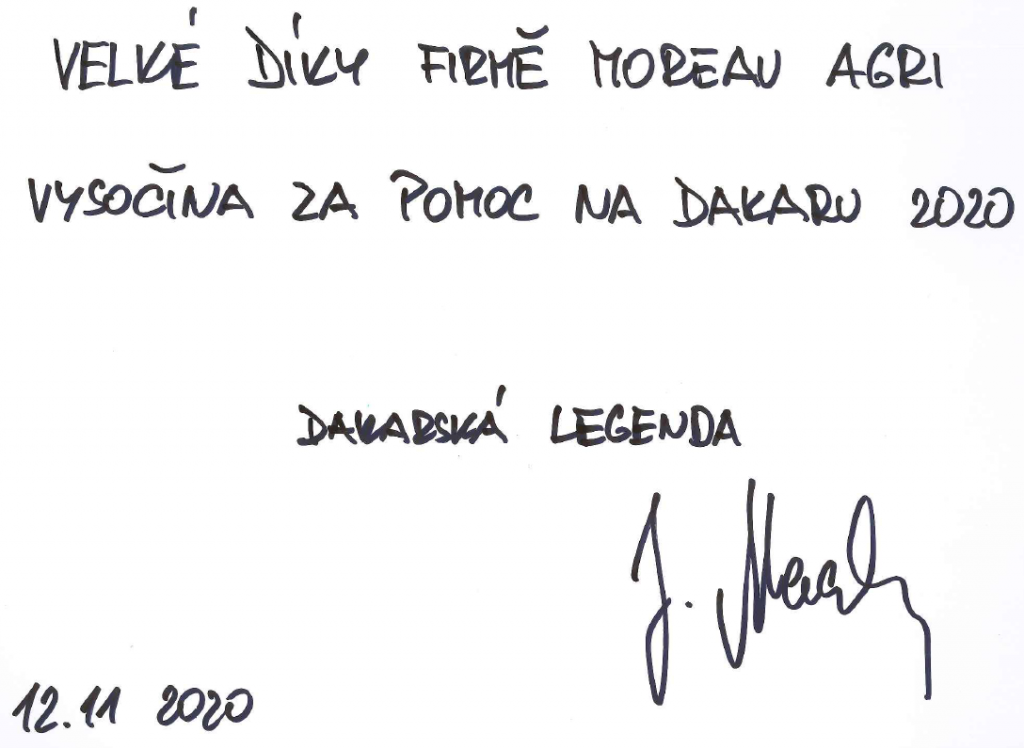 VELKÉ DÍKY FIRMĚ MOREAU AGRI
VYSOČINA ZA POMOC NA DAKARU 2020
DAKARSKÁ LEGENDA
J.
12.11 2020